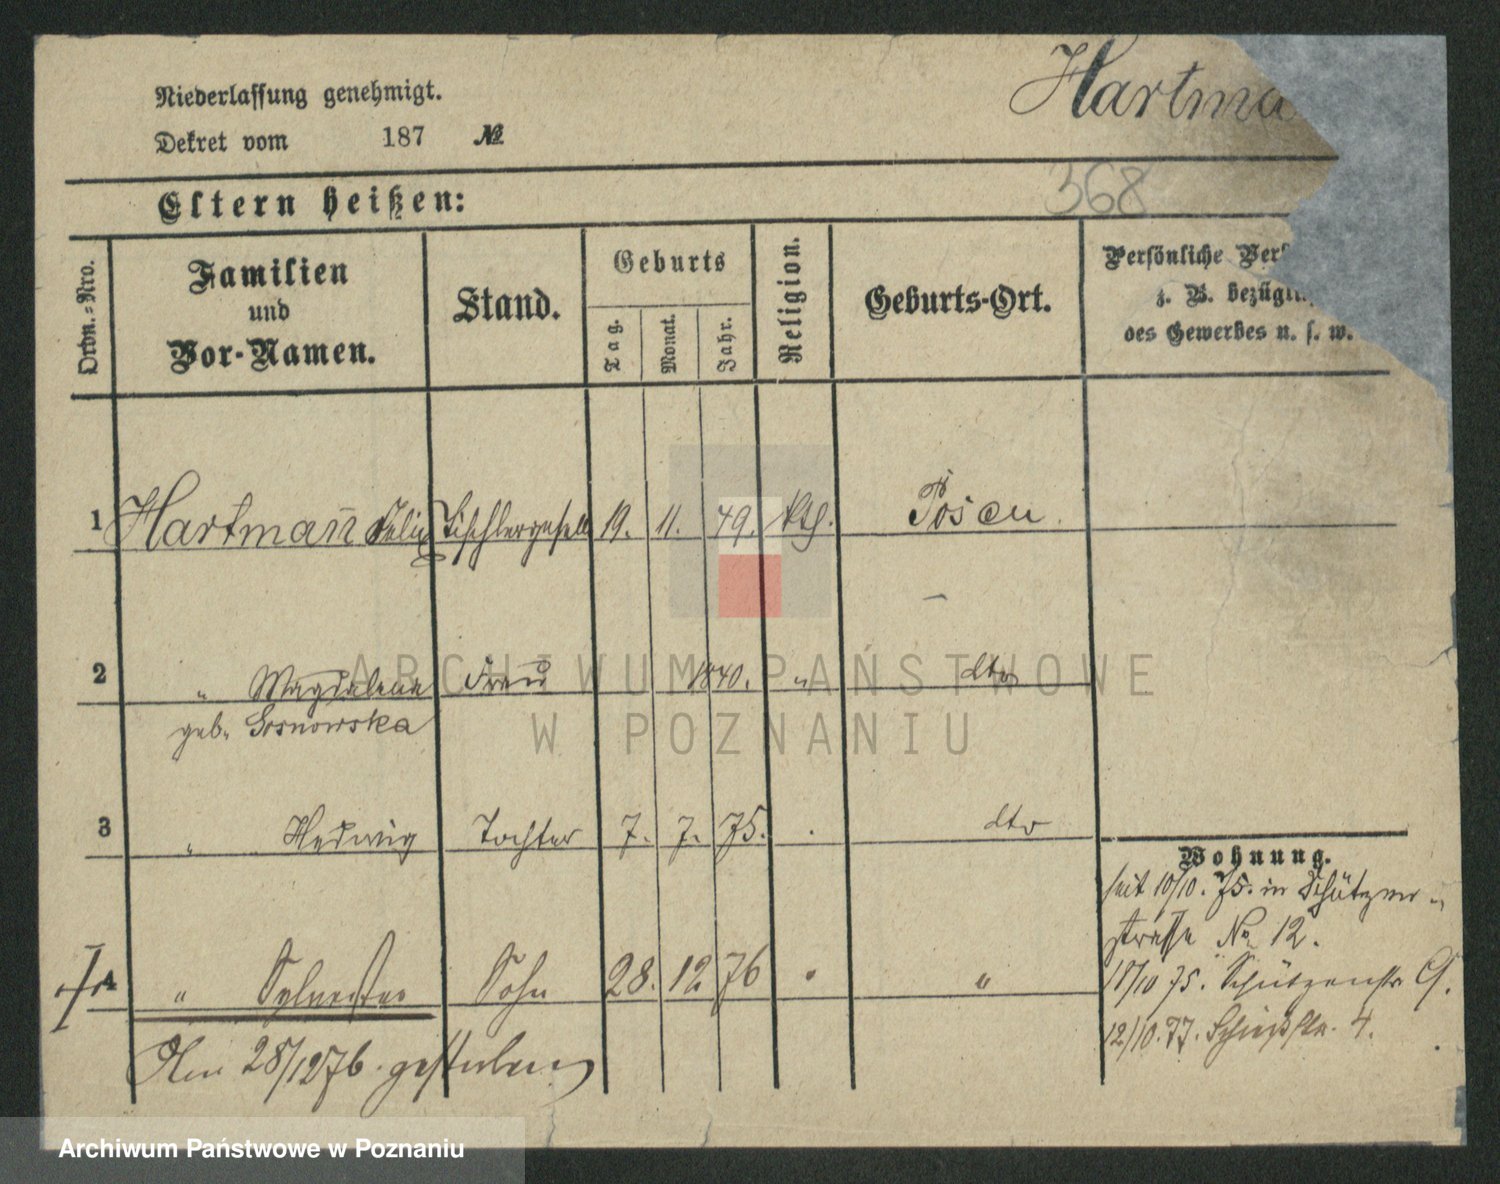 Niederlassung genehmigt.
Dekret vom 187 №
Hartma
368
Eltern heißen:
Ordn.-Nro.
Familien
und
Vor-Namen.
Stand.
Geburts
Tag.
Monat.
Jahr.
Religion.
Geburts-Ort.
Persönliche
z. B.
des Gewerbes u. s. w.
1 Hartman̄ Felix Tischlergesell 19. 11. 49. kth. Posen.
2 " Magdalena Frau 1840. " dto
geb. Sosnowska
3 " Hedwig Tochter 7. 7. 75. . dto
4 " Sylvester Sohn 28. 12 76 " "
Am 28/12 76. gestorben
Wohnung.
seit 10/10. 75. in Schützen-
strasse No 12.
18/10 75. Schützenstr
12/10. 77. Schießstr. 4.
ARCHIWUM PAŃSTWOWE
W POZNANIU
Archiwum Państwowe w Poznaniu